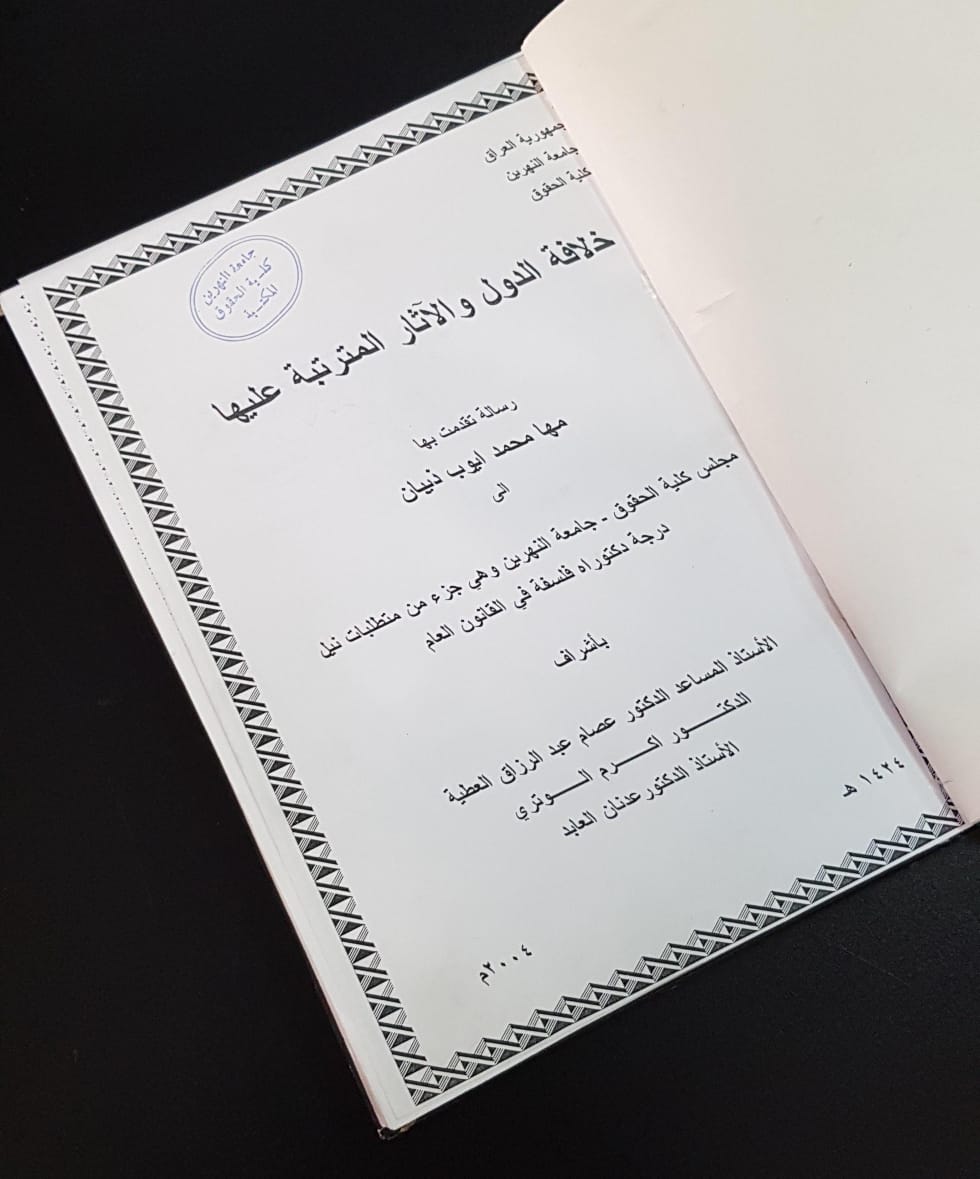 جمهورية العراق
جامعة النهرين
كلية الحقوق
جامعة النهرين
كلية الحقوق
المكتبة
خلافة الدول والآثار المترتبة عليها
رسالة تقدمت بها
مها محمد ايوب ذبيان
الى
مجلس كلية الحقوق - جامعة النهرين وهي جزء من متطلبات نيل
درجة دكتوراه فلسفة في القانون العام
بأشراف
الأستاذ المساعد الدكتور عصام عبد الرزاق العطية
الدكتور اكرم الوتري
الأستاذ الدكتور عدنان العابد
١٤٢٤ هـ
٢٠٠٤م